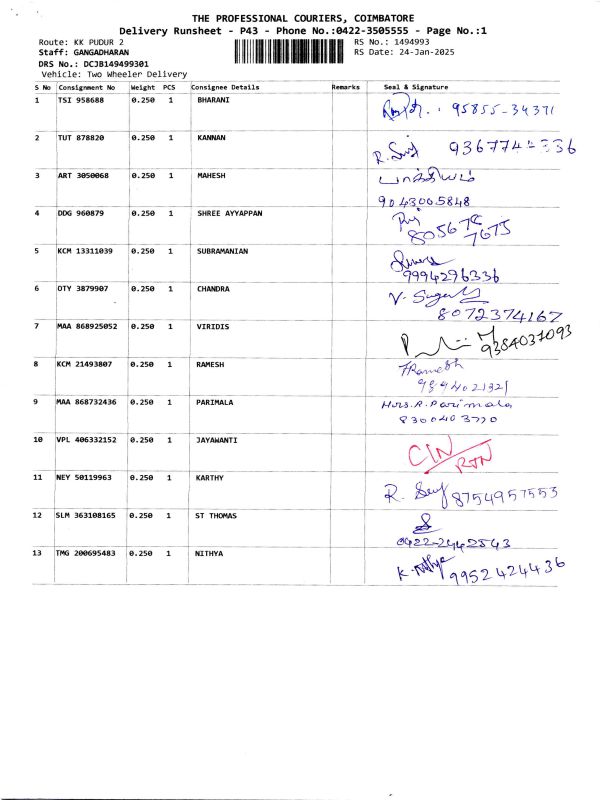 THE PROFESSIONAL COURIERS, COIMBATORE
Delivery Runsheet - P43 - Phone No.:0422-3505555 - Page No.:1
Route: KK PUDUR 2 RS No.: 1494993
Staff: GANGADHARAN RS Date: 24-Jan-2025
DRS No.: DCJB149499301
Vehicle: Two Wheeler Delivery
S No Consignment No Weight PCS Consignee Details Remarks Seal & Signature
1 TSI 958688 0.250 1 BHARANI 95855-34371
2 TUT 878820 0.250 1 KANNAN R.
3 ART 3050068 0.250 1 MAHESH பாக்கியம்
9043065848
4 DDG 960879 0.250 1 SHREE AYYAPPAN
7675
5 KCM 13311039 0.250 1 SUBRAMANIAN
9994296336
6 OTY 3879907 0.250 1 CHANDRA V.
8072374167
7 MAA 868925052 0.250 1 VIRIDIS 9384037093
8 KCM 21493807 0.250 1 RAMESH T Ramesh
9 MAA 868732436 0.250 1 PARIMALA Mrs. R. Parimala
8300403770
10 VPL 406332152 0.250 1 JAYAWANTI CIN/
RTN
11 NEY 50119963 0.250 1 KARTHY R. 8754957553
12 SLM 363108165 0.250 1 ST THOMAS
0422-2442543
13 TMG 200695483 0.250 1 NITHYA K. Nithya 9952424436